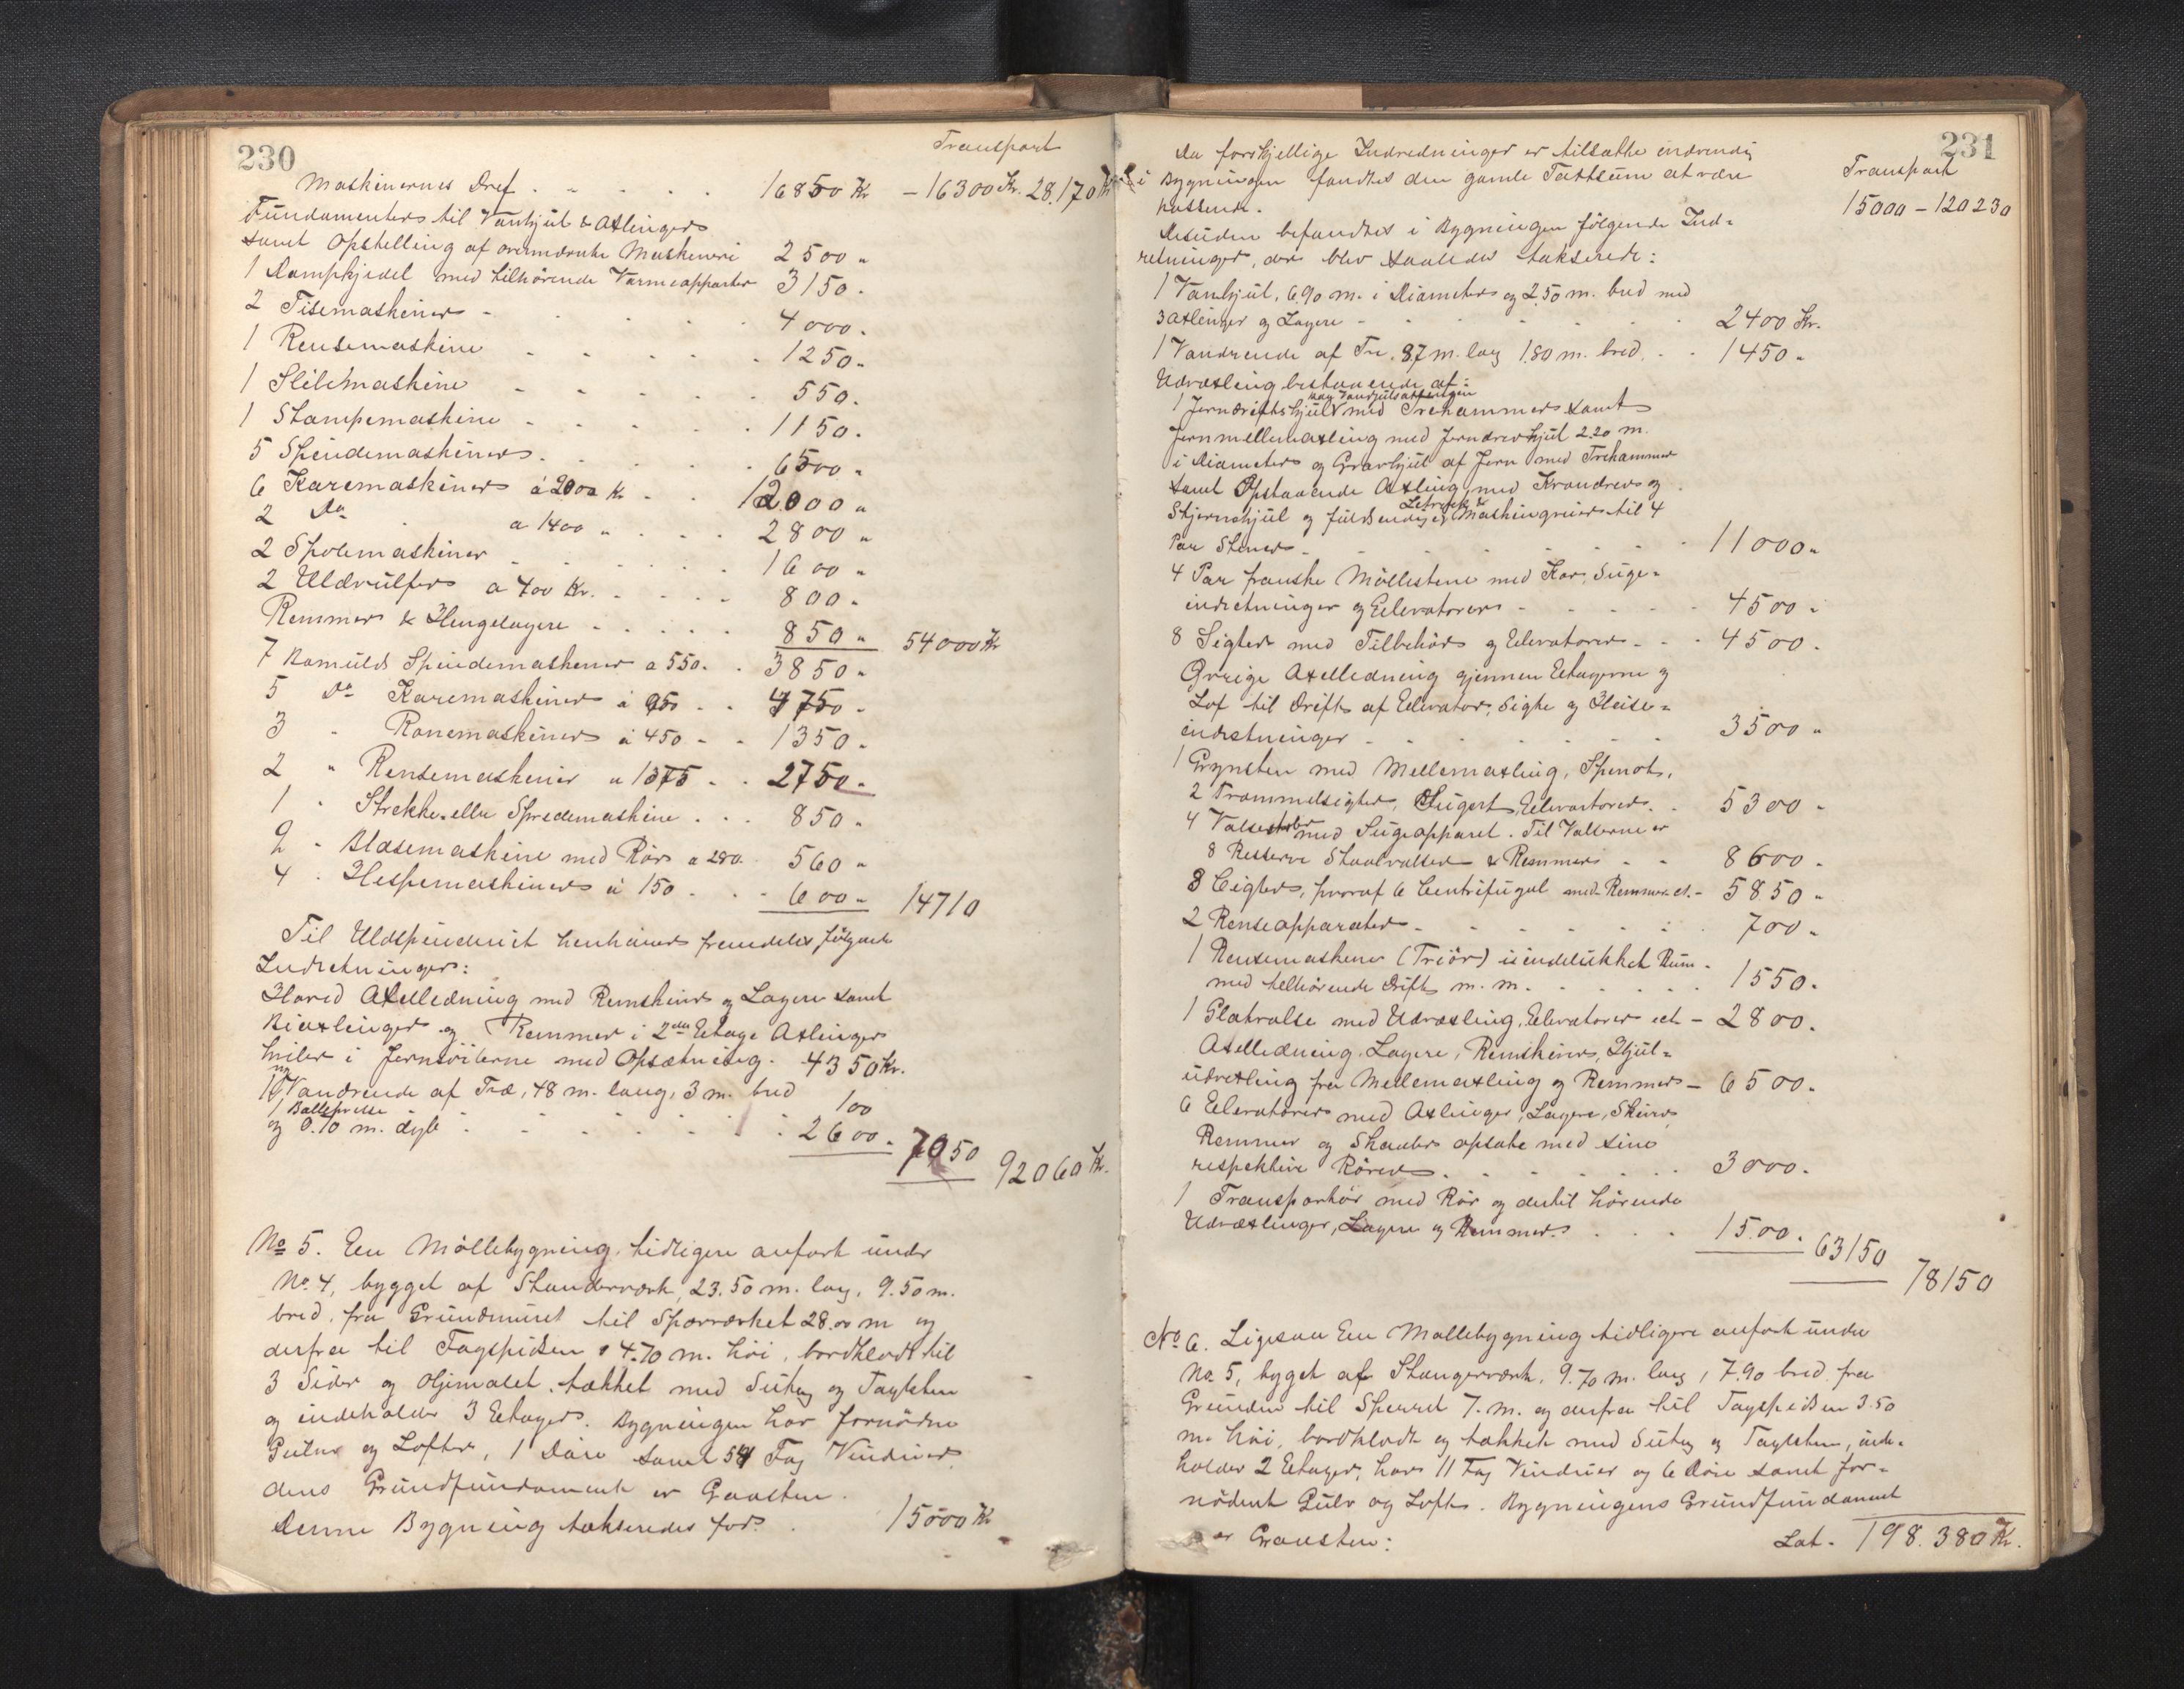 230
Transport
Maskinernes Dref. 16850 Kr — 16300 Kr. 28.170 Kr
Fundamenter til Vanhjul & Axlinger
samt Opstelling af ovennævnte Maskineri 2500 "
1 Dampkjedel med tilhörende Varmeapparter 3150 "
2 Tisemaskiner 4000 "
1 Rensemaskine 1250 "
1 Slibemaskine 550 "
1 Stampemaskine 1150 "
5 Spindemaskiner 6500 "
6 Karemaskiner á 2000 Kr 12000 "
2 Do a 1400 " 2800 "
2 Spolemaskiner 1600 "
2 Uldvulfer a 400 Kr. 800 "
Remmer & Hengelagere 850 " 54000 Kr
7 Bomulds Spindemaskiner a 550. 3850 "
5 Do Karemaskiner á 950 4750 "
3 " Ronemaskiner á 450 1350 "
2 " Rensemaskiner a 1375 2750 "
1 " Strekke- eller Spredemaskine 850 "
2 " Blæsemaskine med Rör a 280 560 "
4 " Hespemaskiner á 150 600 " 14710
Til Uldspinderiet henhörer fremdeles fölgende
Indretninger:
Hoved Axelledning med Remskiver og Lagere samt
Biaxlinger og Remmer i 2den Etage Axlinger
hviler i Jernsöilerne med Opsætning. 4350 Kr.
1 ny Vandrende af Træ, 48 m. lang, 3 m. bred
1 Ballepresse 100
og 0.70 m. dyb 2600 " 7050 92060 Kr.
No 5. Een Möllebygning, tidligere anfört under
No. 4, bygget af Standerværk, 23.50 m. lang, 9.50 m.
bred, fra Grundmuret til Sparværket 28.00 m og
derfra til Tagspidsen 4.70 m. höi, bordklædt til
3 Sider og Oljemalet, tækket med Sutag og Taglsten
og indeholder 3 Etager. Bygningen har fornödne
Gulve og Lofter, 1 Döre samt 54 Fag Vinduer,
dens Grundfundament er Graasten.
Denne Bygning takseredes for 15000 Kr
231
Da forskjellige Indredninger er tilsatte indvendig
i Bygningen fandtes den gamle Taktsum at være
passende.
Transport
15000 – 120230
Desuden befandtes i Bygningen fölgende Ind-
retninger, der blev saaledes takserede:
1 Vanhjul, 6.90 m. i Diameter og 2.50 m. bred med
3 Axlinger og Lagere 2400 Kr.
1 Vandrende af Træ. 87 m. lang 1.80 m. bred. 1450 "
Udvæxling bestaaende af:
paa Vandhjulsaxlingen
1 Jerndriftshjul med Trekammer samt
Jernmellemaxling med Jerndrevhjul 2.20 m.
i Diameter og Gravhjul af Jern med Trekammer
samt Opstaaende Axling med Krondrev og
Letverk &
Stjernehjul og fuldstendig Maskingreier til 4
Par Stener 11000 "
4 Par franske Möllestene med Kar, Suge-
indretninger og Elevatorer 4500 "
8 Sigter med Tilbehör og Elevatorer 4500 "
Övrige Axelledning gjennem Etagerne og
Lof til Drift af Elevator, Sigte og Heise-
indretninger 3500 "
1 Grynsten med Mellemaxling, Spinot,
2 Trommelsigter, Sugert, Elevatorer. 5300 "
4 Valsestoler med Sugeapparet. Til Valserne er
8 Reserve Staalvalser & Remmer 8600 "
8 Cigter, hvoraf 6 Centrifugal med Remmer et. 5850 "
2 Renseapparater 700 "
1 Rensemaskiner (Triör) i indelukket Rum
med tilhörende Drift m. m. 1550 "
1 Glatvalse med Udvæxling, Elevatorer et. 2800 "
Axelledning, Lagere, Remskiver, Hjul-
udvexling fra Mellemaxling og Remmer 6500 "
6 Elevatorer med Axlinger, Lagere, Skiver,
Remmer og Skaaler opsatte med sine
respektive Rörer 3000 "
1 Transportör med Rör og dertil hörende
Udvæxlinger, Lagere og Remmer 1500 " 63150
78150
No 6. Ligesaa Een Möllebygning tidligere anfört under
No. 5, bygget af Stangerværk, 9.70 m. lang, 7.90 bred fra
Grunden til Sperret 7. m. og derfra til Tagspidsen 3.50
m. höi, bordklædt og tækket med Sutag og Taglsten, inde-
holder 2 Etager, har 11 Fag Vinduer og 6 Döre samt for-
nödent Gulv og Loft. Bygningens Grundfundament
er Graasten:
Lat. 198.380 Kr.